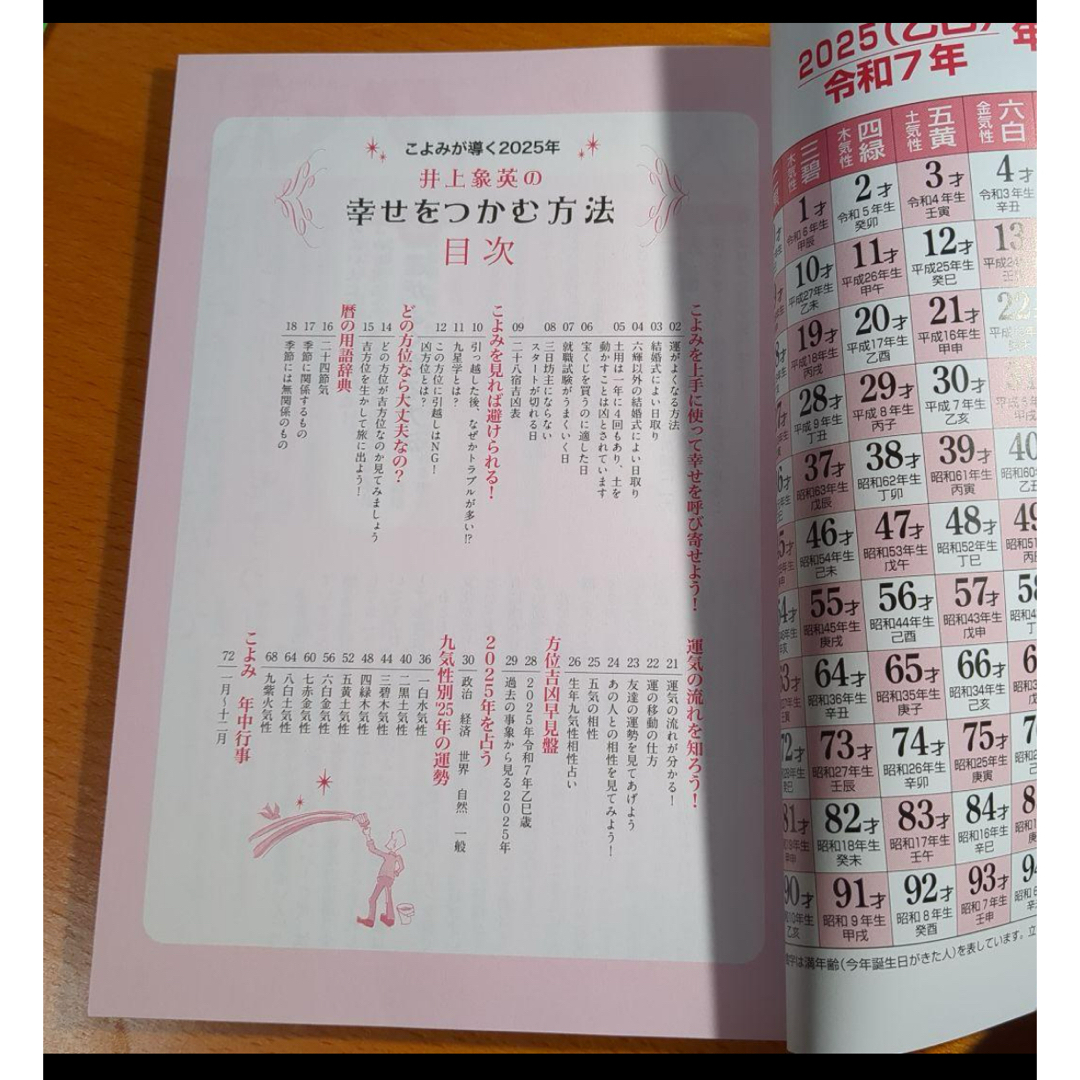 こよみが導く2025年
井上象英の
幸せをつかむ方法
目次
こよみを上手に使って幸せを呼び寄せよう！
02 運がよくなる方法
03 結婚式によい日取り
04 六輝以外の結婚式によい日取り
05 土用は一年に4回もあり、土を
動かすことは凶とされています
06 宝くじを買うのに適した日
07 就職試験がうまくいく日
08 三日坊主にならない
スタートが切れる日
09 二十八宿吉凶表
こよみを見れば避けられる！
10 引っ越した後、なぜかトラブルが多い!?
11 九星学とは？
12 この方位に引越しはNG！
凶方位とは？
どの方位なら大丈夫なの？
14 どの方位が吉方位なのか見てみましょう
15 吉方位を生かして旅に出よう！
暦の用語辞典
16 二十四節気
17 季節に関係するもの
18 季節には無関係のもの
運気の流れを知ろう！
21 運気の流れが分かる！
22 運の移動の仕方
23 友達の運勢を見てあげよう
24 あの人との相性を見てみよう！
25 五気の相性
26 生年九気性相性占い
方位吉凶早見盤
28 2025年令和7年乙巳歳
29 過去の事象から見る2025年
2025年を占う
30 政治 経済 世界 自然 一般
九気性別'25年の運勢
36 一白水気性
40 二黒土気性
44 三碧木気性
48 四緑木気性
52 五黄土気性
56 六白金気性
60 七赤金気性
64 八白土気性
68 九紫火気性
こよみ 年中行事
72 一月〜十二月
2025(乙巳)年
令和7年
三碧 木気性
四緑 木気性
五黄 土気性
六白 金気性
1才 令和6年生 甲辰
2才 令和5年生 癸卯
3才 令和4年生 壬寅
4才 令和3年生 辛丑
10才 平成27年生 乙未
11才 平成26年生 甲午
12才 平成25年生 癸巳
13
19才 平成18年生 丙戌
20才 平成17年生 乙酉
21才 平成16年生 甲申
22
28才 平成9年生 丁丑
29才 平成8年生 丙子
30才 平成7年生 乙亥
37才 昭和63年生 戊辰
38才 昭和62年生 丁卯
39才 昭和61年生 丙寅
40
46才 昭和54年生 己未
47才 昭和53年生 戊午
48才 昭和52年生 丁巳
49
55才 昭和45年生 庚戌
56才 昭和44年生 己酉
57才 昭和43年生 戊申
58
64才 昭和36年生 辛丑
65才 昭和35年生 庚子
66才 昭和34年生 己亥
73才 昭和27年生 壬辰
74才 昭和26年生 辛卯
75才 昭和25年生 庚寅
81才
82才 昭和18年生 癸未
83才 昭和17年生 壬午
84才 昭和16年生 辛巳
90才 乙亥
91才 昭和9年生 甲戌
92才 昭和8年生 癸酉
93才 昭和7年生 壬申
は満年齢(今年誕生日がきた人)を表しています。立